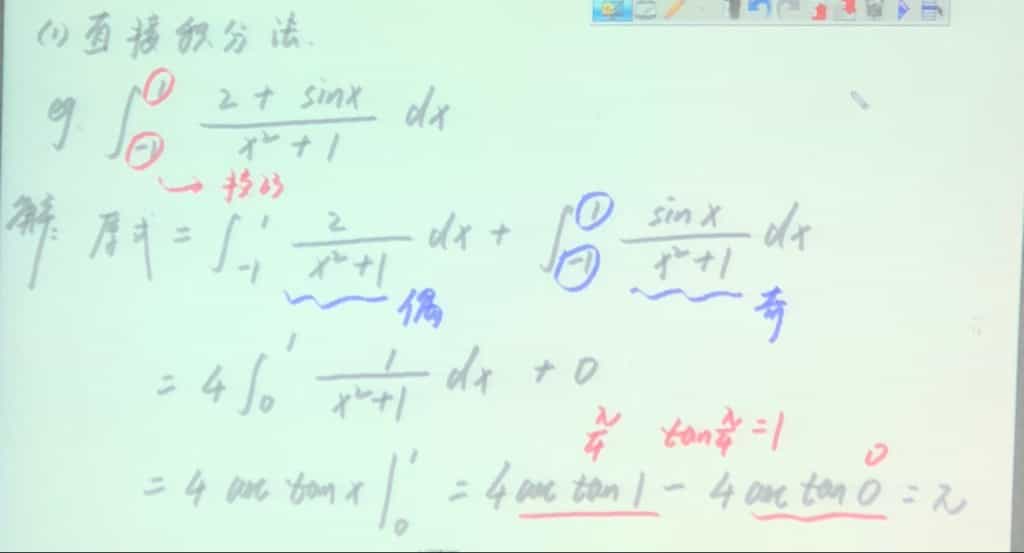 (1) 直接积分法.
eg. ∫_{-1}^{1} (2 + sinx)/(x²+1) dx
解: 原式 = ∫_{-1}^{1} 2/(x²+1) dx + ∫_{-1}^{1} sinx/(x²+1) dx
偶 奇
= 4∫_{0}^{1} 1/(x²+1) dx + 0
π/4 tan π/4 = 1 0
= 4 arctanx |_{0}^{1} = 4arctan1 - 4arctan0 = π